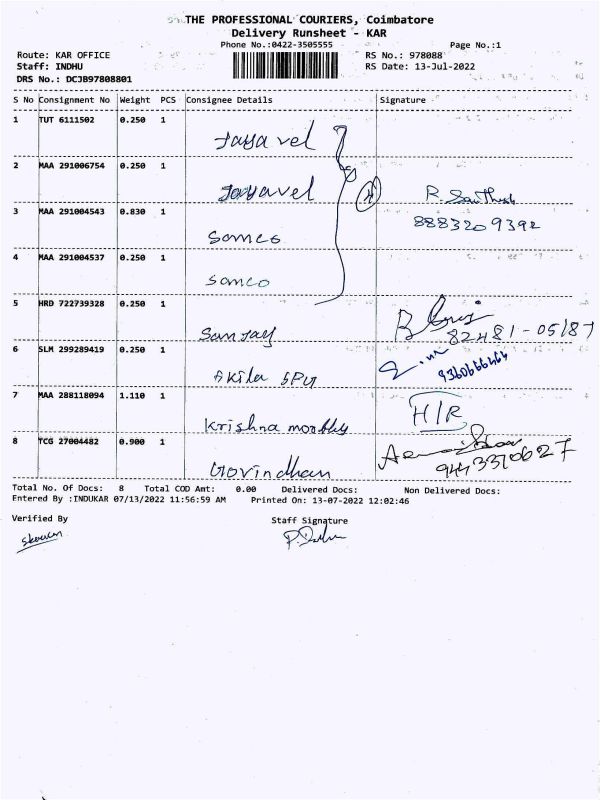 THE PROFESSIONAL COURIERS, Coimbatore
Delivery Runsheet - KAR
Phone No.:0422-3505555 Page No.:1
Route: KAR OFFICE RS No.: 978088
Staff: INDHU RS Date: 13-Jul-2022
DRS No.: DCJB97808801
S No Consignment No Weight PCS Consignee Details Signature
1 TUT 6111502 0.250 1
Jayavel
2 MAA 291006754 0.250 1
Jayavel R. Santhosh
3 MAA 291004543 0.830 1 8883209392
Somco
4 MAA 291004537 0.250 1
Somco
5 HRD 722739328 0.250 1
Sanjay 82481-05187
6 SLM 299289419 0.250 1
Akila 9360666464
7 MAA 288118094 1.110 1 H/R
Krishna
8 TCG 27004482 0.900 1
Govindhan 9443370627
Total No. Of Docs: 8 Total COD Amt: 0.00 Delivered Docs: Non Delivered Docs:
Entered By :INDUKAR 07/13/2022 11:56:59 AM Printed On: 13-07-2022 12:02:46
Verified By Staff Signature